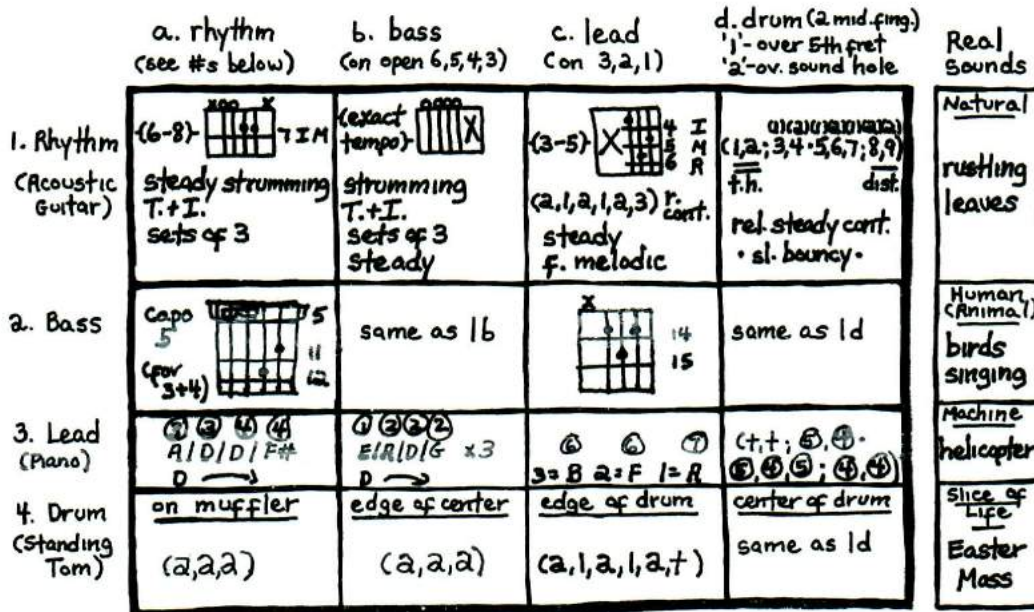 a. rhythm
(see #s below)
b. bass
(on open 6,5,4,3)
c. lead
(on 3,2,1)
d. drum (2 mid. fing.)
'1'- over 5th fret
'2'-ov. sound hole
Real
Sounds
1. Rhythm
(Acoustic
Guitar)
xoo x
(6-8) 7 I M
steady strumming
T.+I.
sets of 3
oooo
(exact
tempo) X
strumming
T.+I.
sets of 3
steady
(3-5) X 4 I
5 M
6 R
(2,1,2,1,2,3) r.
cont.
steady
f. melodic
(1,2; 3,4 · 5,6,7; 8,9)
t.h. dist.
rel. steady cont.
· sl. bouncy ·
Natural
rustling
leaves
2. Bass
capo
5
(for
3+4)
5
11
12
same as 1b
x
14
15
same as 1d
Human
(Animal)
birds
singing
3. Lead
(Piano)
③ ④ ④
A/D/D/F#
D →
① ② ② ②
E/A/D/G x3
D →
⑥ ⑥ ⑦
3=B 2=F 1=A
(t,t; ⑤,④·
⑤,④,⑤; ④,④)
Machine
helicopter
4. Drum
(Standing
Tom)
on muffler
(2,2,2)
edge of center
(2,2,2)
edge of drum
(2,1,2,1,2,t)
center of drum
same as 1d
Slice of
Life
Easter
Mass